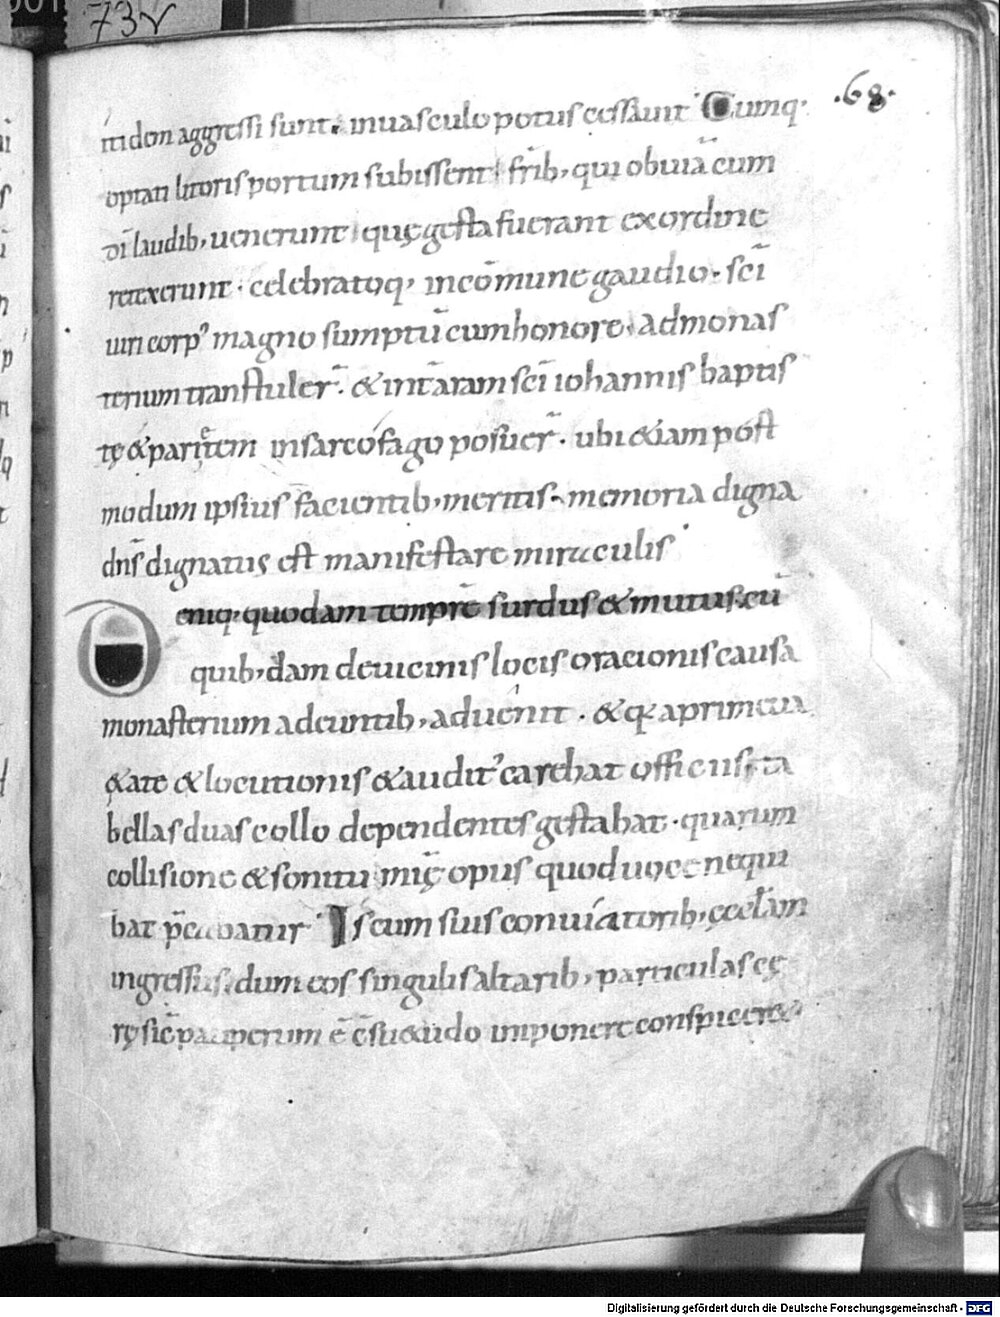 73v
.68.
itidon aggressi sunt. inuasculo potus cessaunt Cumq;
optati litoris portum subissent frīb; qui obuiā cum
dī laudib; uenerunt quę gesta fuerant ex ordine
retexerunt. celebratoq; in cōmune gaudio. scī
uiri corp᾿ magno sumptū cum honore. ad monas
terium transtuler̄. & in t̄aram scī iohannis baptis
tę & pariete in sarcofago posuer̄. ubi &iam post
modum ipsius facientib; meritis. memoria digna
dn̄s dignatus est manifestare miraculis
Deniq; quodam tempr̄e surdus & mutus. cū
quib;dam de uicinis locis orationis causa
monasterium adeuntib; aduenit. & q᷎ a primeua
&ate & locutionis & audit᾿ carebat officiis. ta
bellas duas collo dependentes gestabat. quarum
collisione & sonitu mīę opus quod uoce nequi
bat p̄cabatur Is cum suis conuiatorib; ęccl̄am
ingressus. dum eos singulis altarib; particulas cę
rę sic̄ pauperum ē c̄su&udo imponere conspiceret
Digitalisierung gefördert durch die Deutsche Forschungsgemeinschaft - DFG